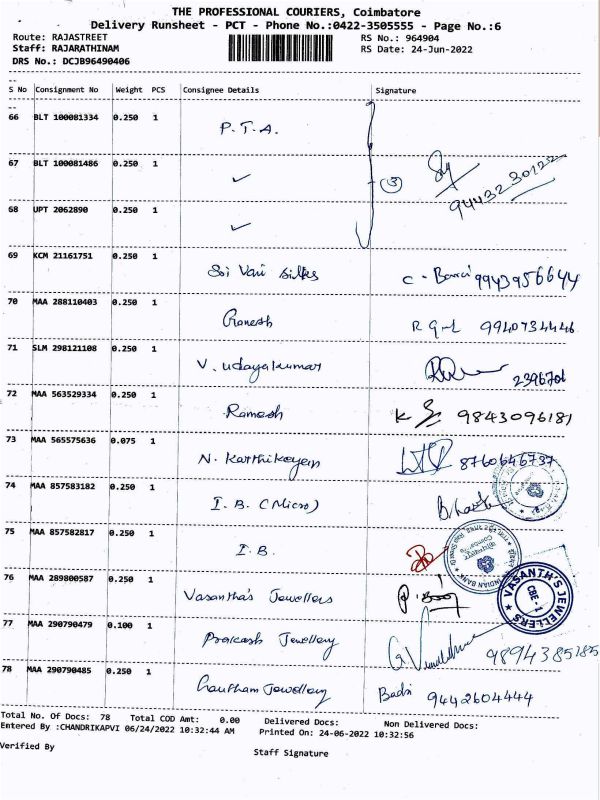 THE PROFESSIONAL COURIERS, Coimbatore
Delivery Runsheet - PCT - Phone No.:0422-3505555 - Page No.:6
Route: RAJASTREET RS No.: 964904
Staff: RAJARATHINAM RS Date: 24-Jun-2022
DRS No.: DCJB96490406
S No Consignment No Weight PCS Consignee Details Signature
66 BLT 100081334 0.250 1 P.T.A.
67 BLT 100081486 0.250 1 ✓ 3 9443230122
68 UPT 2062890 0.250 1 ✓
69 KCM 21161751 0.250 1 Sri Vari Silks C - 9943956644
70 MAA 288110403 0.250 1 Ganesh 9940734446
71 SLM 298121108 0.250 1 V. Udayakumar 2396701
72 MAA 563529334 0.250 1 Ramesh K 9843096181
73 MAA 565575636 0.075 1 N. Karthikeyen 8760646737
74 MAA 857583182 0.250 1 I.B. (Micro)
75 MAA 857582817 0.250 1 I.B.
INDIAN BANK
76 MAA 289800587 0.250 1 Vasantha's Jewellers
VASANTH'S JEWELLERS CBE-1
77 MAA 290790479 0.100 1 Prakash Jewellery G 9894385185
78 MAA 290790485 0.250 1 Gautham Jewellery Badri 9442604444
Total No. Of Docs: 78 Total COD Amt: 0.00 Delivered Docs: Non Delivered Docs:
Entered By :CHANDRIKAPVI 06/24/2022 10:32:44 AM Printed On: 24-06-2022 10:32:56
Verified By Staff Signature